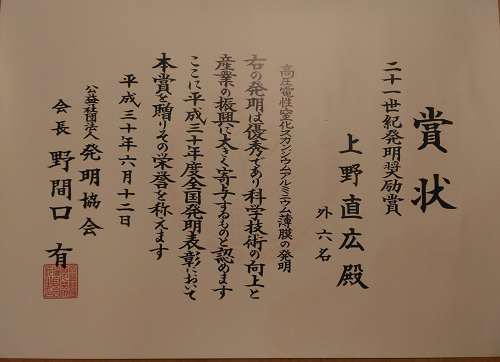 賞状
二十一世紀発明奨励賞
上野直広殿
外六名
高圧電性窒化スカンジウムアルミニウム薄膜の発明
右の発明は優秀であり科学技術の向上と
産業の振興に大きく寄与するものと認めます
ここに平成三十年度全国発明表彰において
本賞を贈りその栄誉を称えます
平成三十年六月十二日
公益社団法人 発明協会
会長 野間口 有